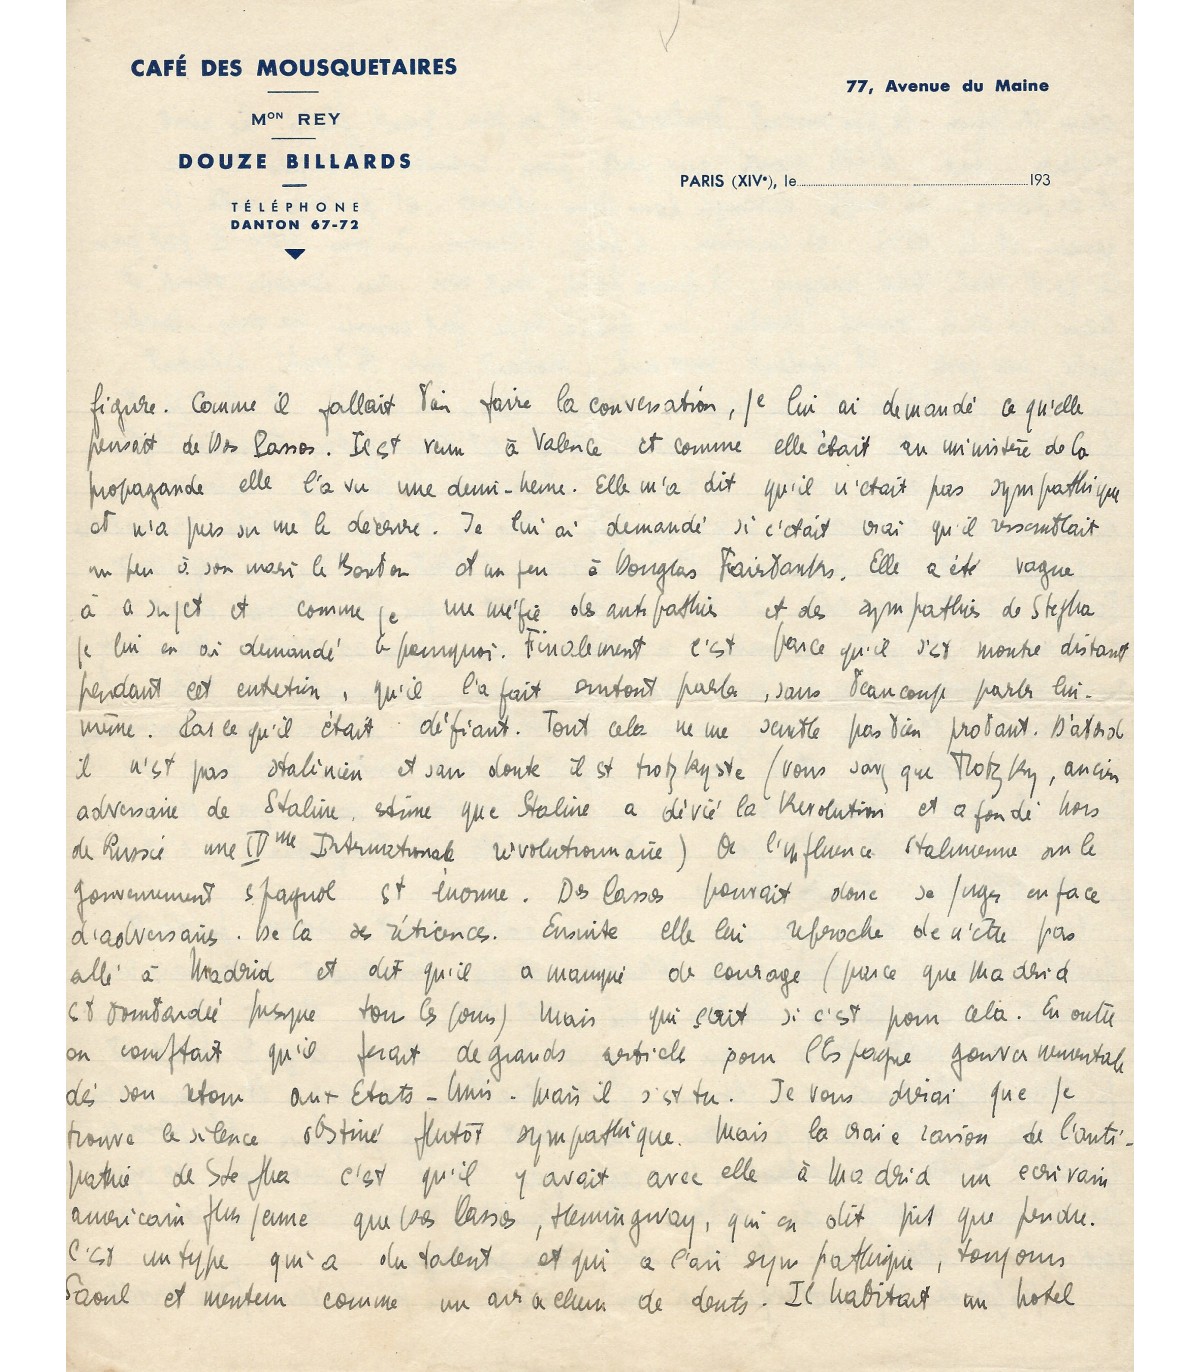 CAFÉ DES MOUSQUETAIRES
Mᵒᴺ REY
DOUZE BILLARDS
TÉLÉPHONE
DANTON 67-72
77, Avenue du Maine
PARIS (XIVᵉ), le 193
figure. Comme il fallait bien faire la conversation, je lui ai demandé ce qu'elle
pensait de Dos Passos. Il est venu à Valence et comme elle était au ministère de la
propagande elle l'a vu une demi-heure. Elle m'a dit qu'il n'était pas sympathique
et n'a pas su me le décrire. Je lui ai demandé si c'était vrai qu'il ressemblait
un peu à son mari le et un peu à Douglas Fairbanks. Elle a été vague
à ce sujet et comme je me méfie des antipathies et des sympathies de Stépha
je lui en ai demandé le pourquoi. Finalement c'est parce qu'il s'est montré distant
pendant cet entretien, qu'il l'a fait surtout parler, sans beaucoup parler lui-
même. Parce qu'il était défiant. Tout cela ne me semble pas bien probant. D'abord
il n'est pas stalinien et sans doute il est trotzkyste (vous savez que Trotzky, ancien
adversaire de Staline, estime que Staline a dévié la Révolution et a fondé hors
de Russie une IVᵐᵉ Internationale révolutionnaire) Or l'influence stalinienne sur le
gouvernement espagnol est énorme. Dos Passos pouvait donc se juger en face
d'adversaires. De là ses réticences. Ensuite elle lui reproche de n'être pas
allé à Madrid et dit qu'il a manqué de courage (parce que Madrid
est bombardée presque tous les jours) Mais qui sait si c'est pour cela. En outre
on comptait qu'il ferait de grands article pour l'Espagne gouvernementale
dès son retour aux Etats-Unis. Mais il s'est tu. Je vous dirai que je
trouve ce silence obstiné plutôt sympathique. Mais la vraie raison de l'anti-
pathie de Stépha c'est qu'il y avait avec elle à Madrid un écrivain
américain plus jeune que Dos Passos, Hemingway, qui en dit pis que pendre.
C'est un type qui a du talent et qui a l'air sympathique, toujours
saoul et menteur comme un arracheur de dents. Il habitait un hôtel